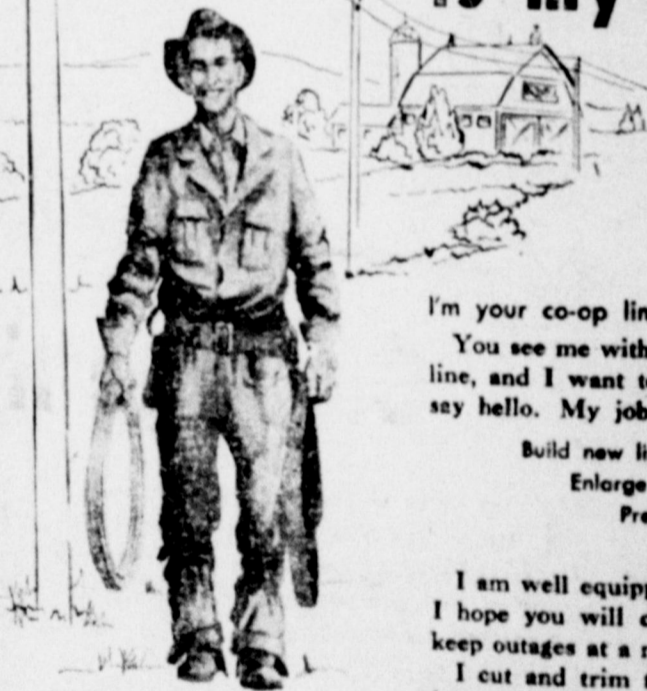 my
I'm your co-op
You see me with
line, and I want
say hello. My job
Build new
Enlarge
I am well
I hope you will
keep outages at a
I cut and trim